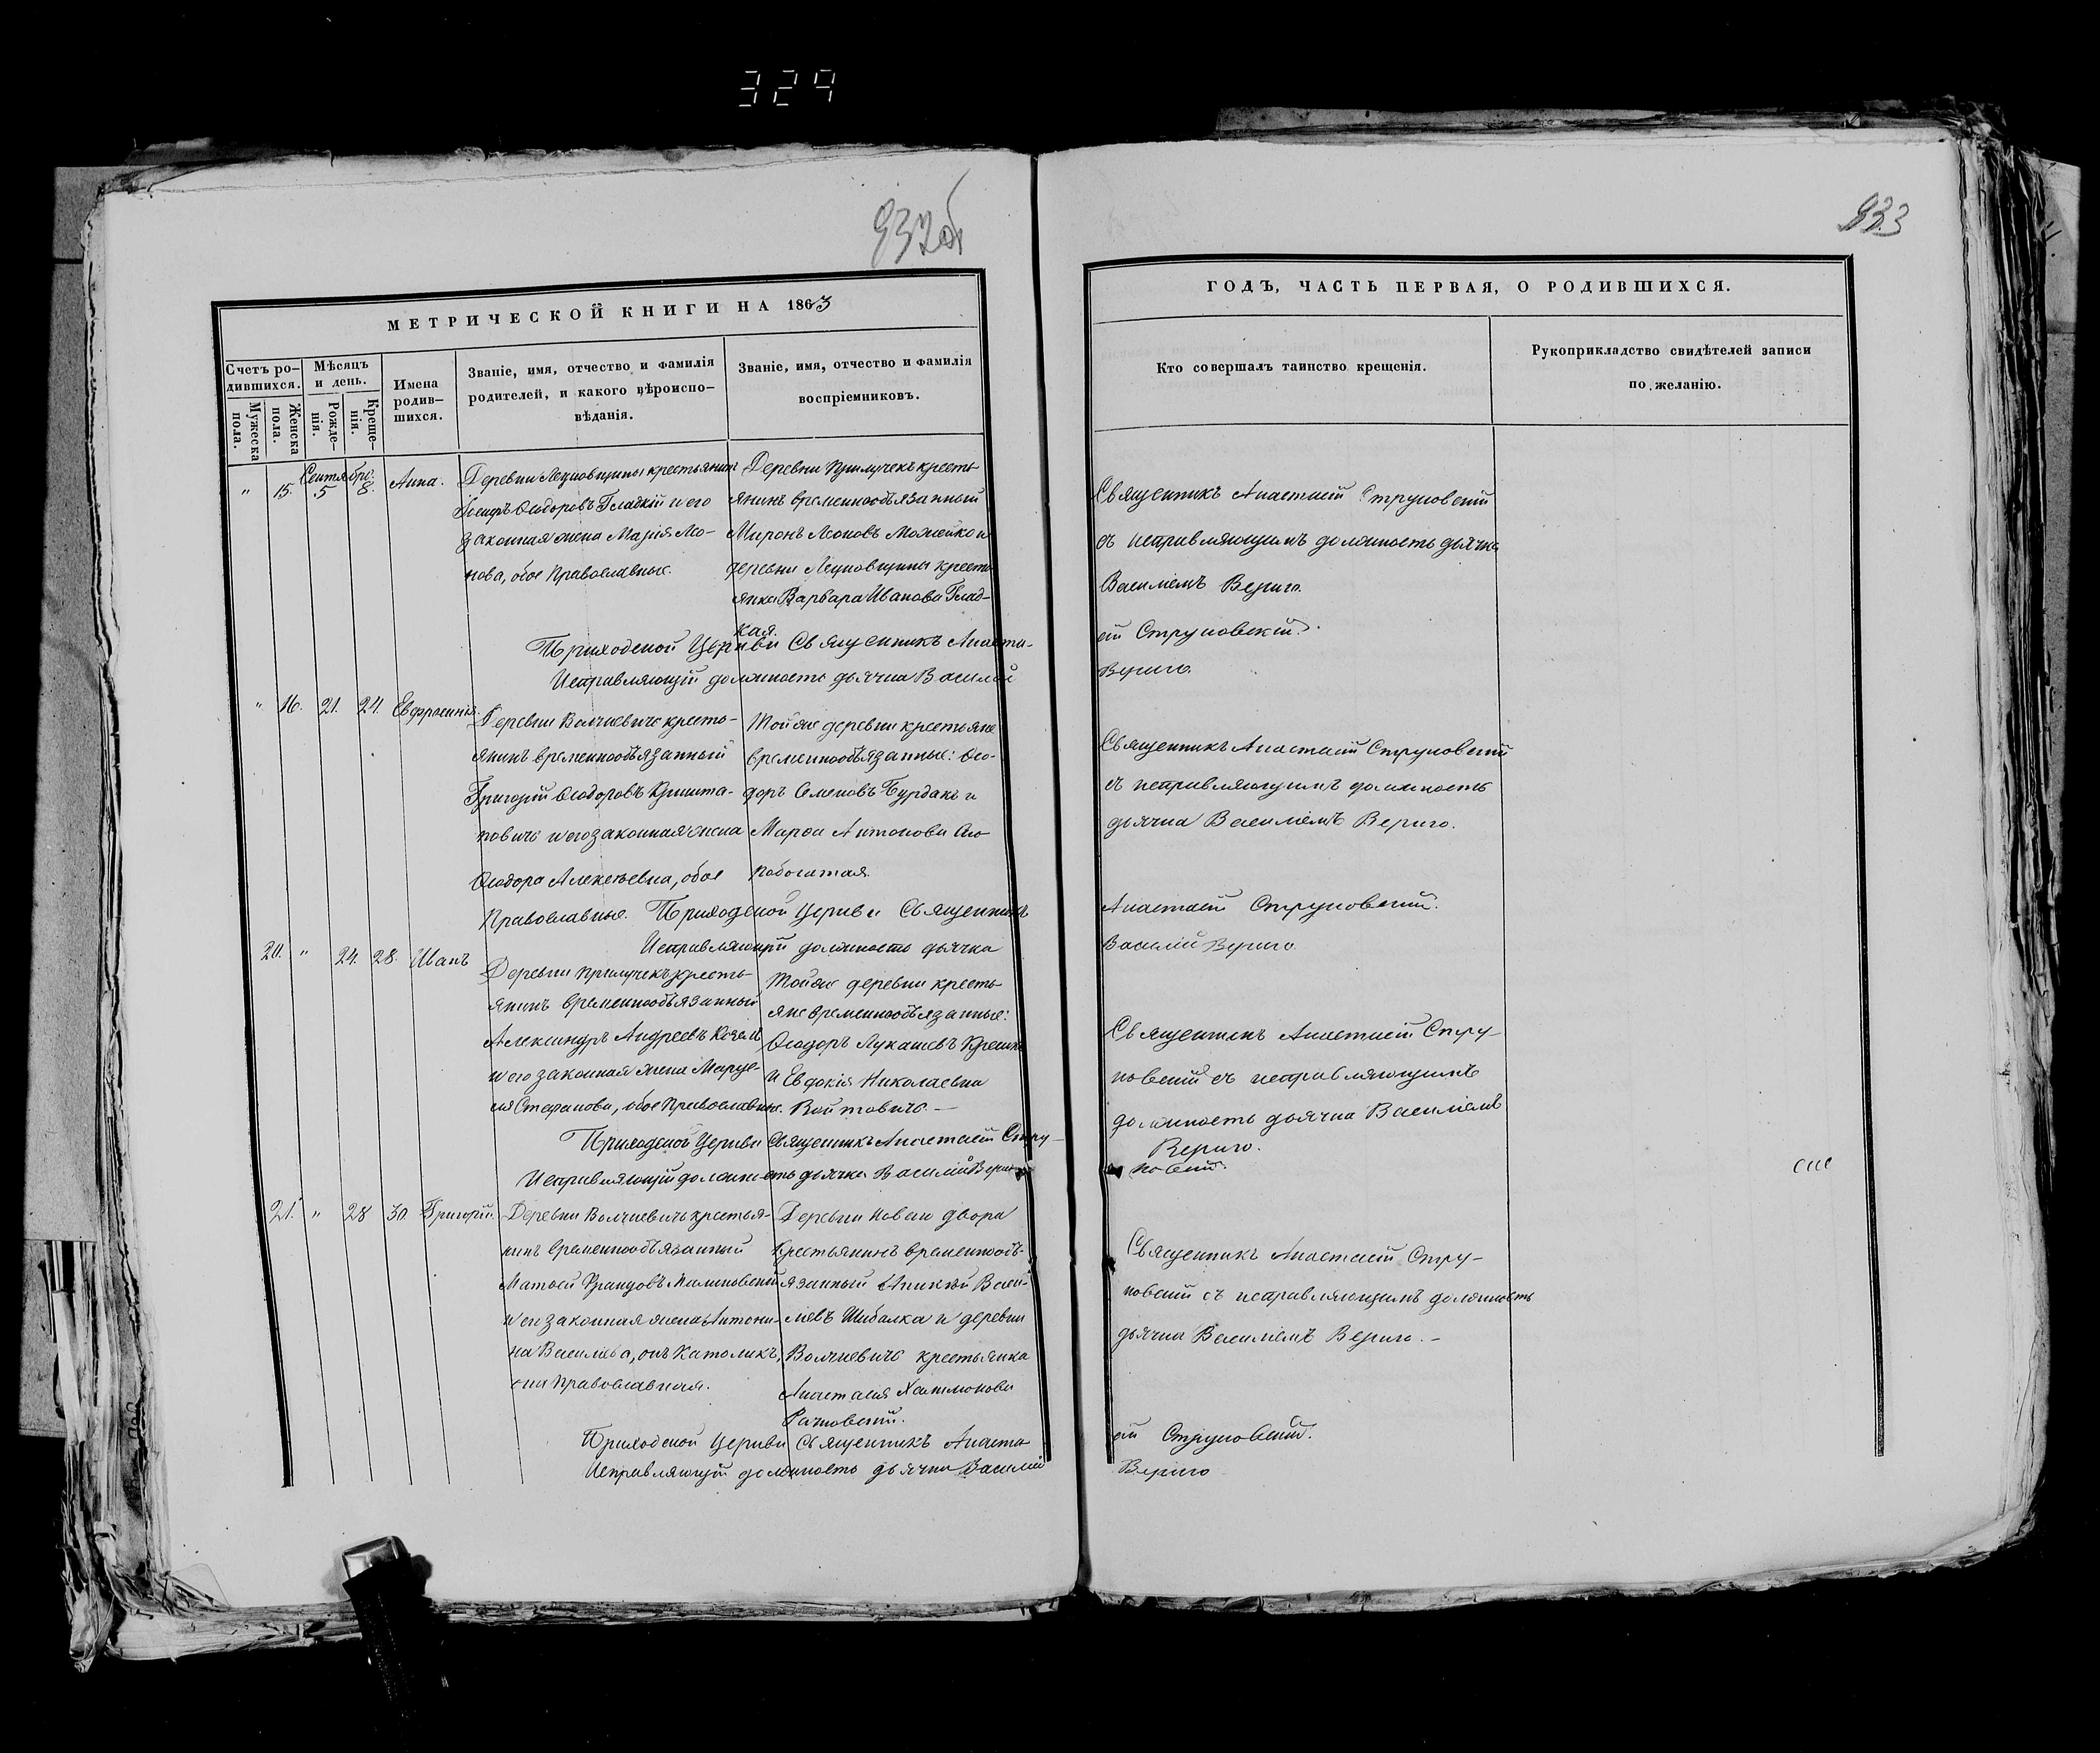 329
932об
933
МЕТРИЧЕСКОЙ КНИГИ НА 1863
ГОДЪ, ЧАСТЬ ПЕРВАЯ, О РОДИВШИХСЯ.
Счетъ ро-
дившихся.
Мужеска
пола.
Женска
пола.
Мѣсяцъ
и день.
Рожде-
нія.
Креще-
нія.
Имена
родив-
шихся.
Званіе, имя, отчество и фамилія
родителей, и какого вѣроиспо-
вѣданія.
Званіе, имя, отчество и фамилія
воспріемниковъ.
Кто совершалъ таинство крещенія.
Рукоприкладство свидѣтелей записи
по желанію.
Сентябрь
" 15. 5 8. Анна.
Деревни крестьянинъ
Іосифъ Ѳеодоровъ Гладкій и его
законная жена Марія Ло-
нова, обое Православные.
Деревни Прилучекъ кресть
янинъ временнообязанный
Миронъ Леоновъ Можейко и
деревни кресть
янка Варвара Иванова Глад-
кая.
Священникъ Анастасій Струковскій
съ исправляющимъ должность дьячка
Василіемъ Вериго.
Приходской Церкви Священникъ Анаста-
ій Струковскій.
Исправляющій должность дьячка Василій
Вериго.
" 16. 21. 24. Евфросинія.
Деревни Волчкевичъ кресть-
янинъ временнообязанный
Григорій Ѳеодоровъ Кришта-
повичъ и его законная жена
Ѳеодора Алексѣевна, обое
Православные.
Той же деревни крестьяне
временнообязанные: Ѳео-
доръ Семеновъ Бурдакъ и
Марѳа Антонова
Священникъ Анастасій Струковскій
съ исправляющимъ должность
дьячка Василіемъ Вериго.
Приходской Церкви Священникъ
Анастасій Струковскій.
Исправляющій должность дьячка
Василій Вериго
20. " 24. 28. Иванъ
Деревни Прилучекъ кресть-
янинъ временнообязанный
Александръ Андреевъ
и его законная жена Мару-
ся Стефанова, обое Православные.
Той же деревни кресть-
яне временнообязанные:
Ѳеодоръ Лукашевъ
и Евдокія Николаевна
Войтовичъ. —
Священникъ Анастасій Стру-
ковскій съ исправляющимъ
должность дьячка Василіемъ
Вериго.
Приходской Церкви Священникъ Анастасій Стру-
ковскій.
Исправляющій должность дьячка Василій Вериго
21. " 28 30. Григорій.
Деревни Волчкевичъ крестья-
нинъ временнообязанный
Матѳей Малиновскій
и его законная жена Антони-
на Василева, онъ Католикъ,
она Православная.
Деревни Новаго двора
крестьянинъ временнообя-
язанный Васи-
лiевъ Шибалка и деревни
Волчкевичъ крестьянка
Анастасія
Рачковскій.
Священникъ Анастасій Стру-
ковскій съ исправляющимъ должность
дьячка Василіемъ Вериго. —
Приходской Церкви Священникъ Анаста
ій Струковскій.
Исправляющій должность дьячка Василій
Вериго